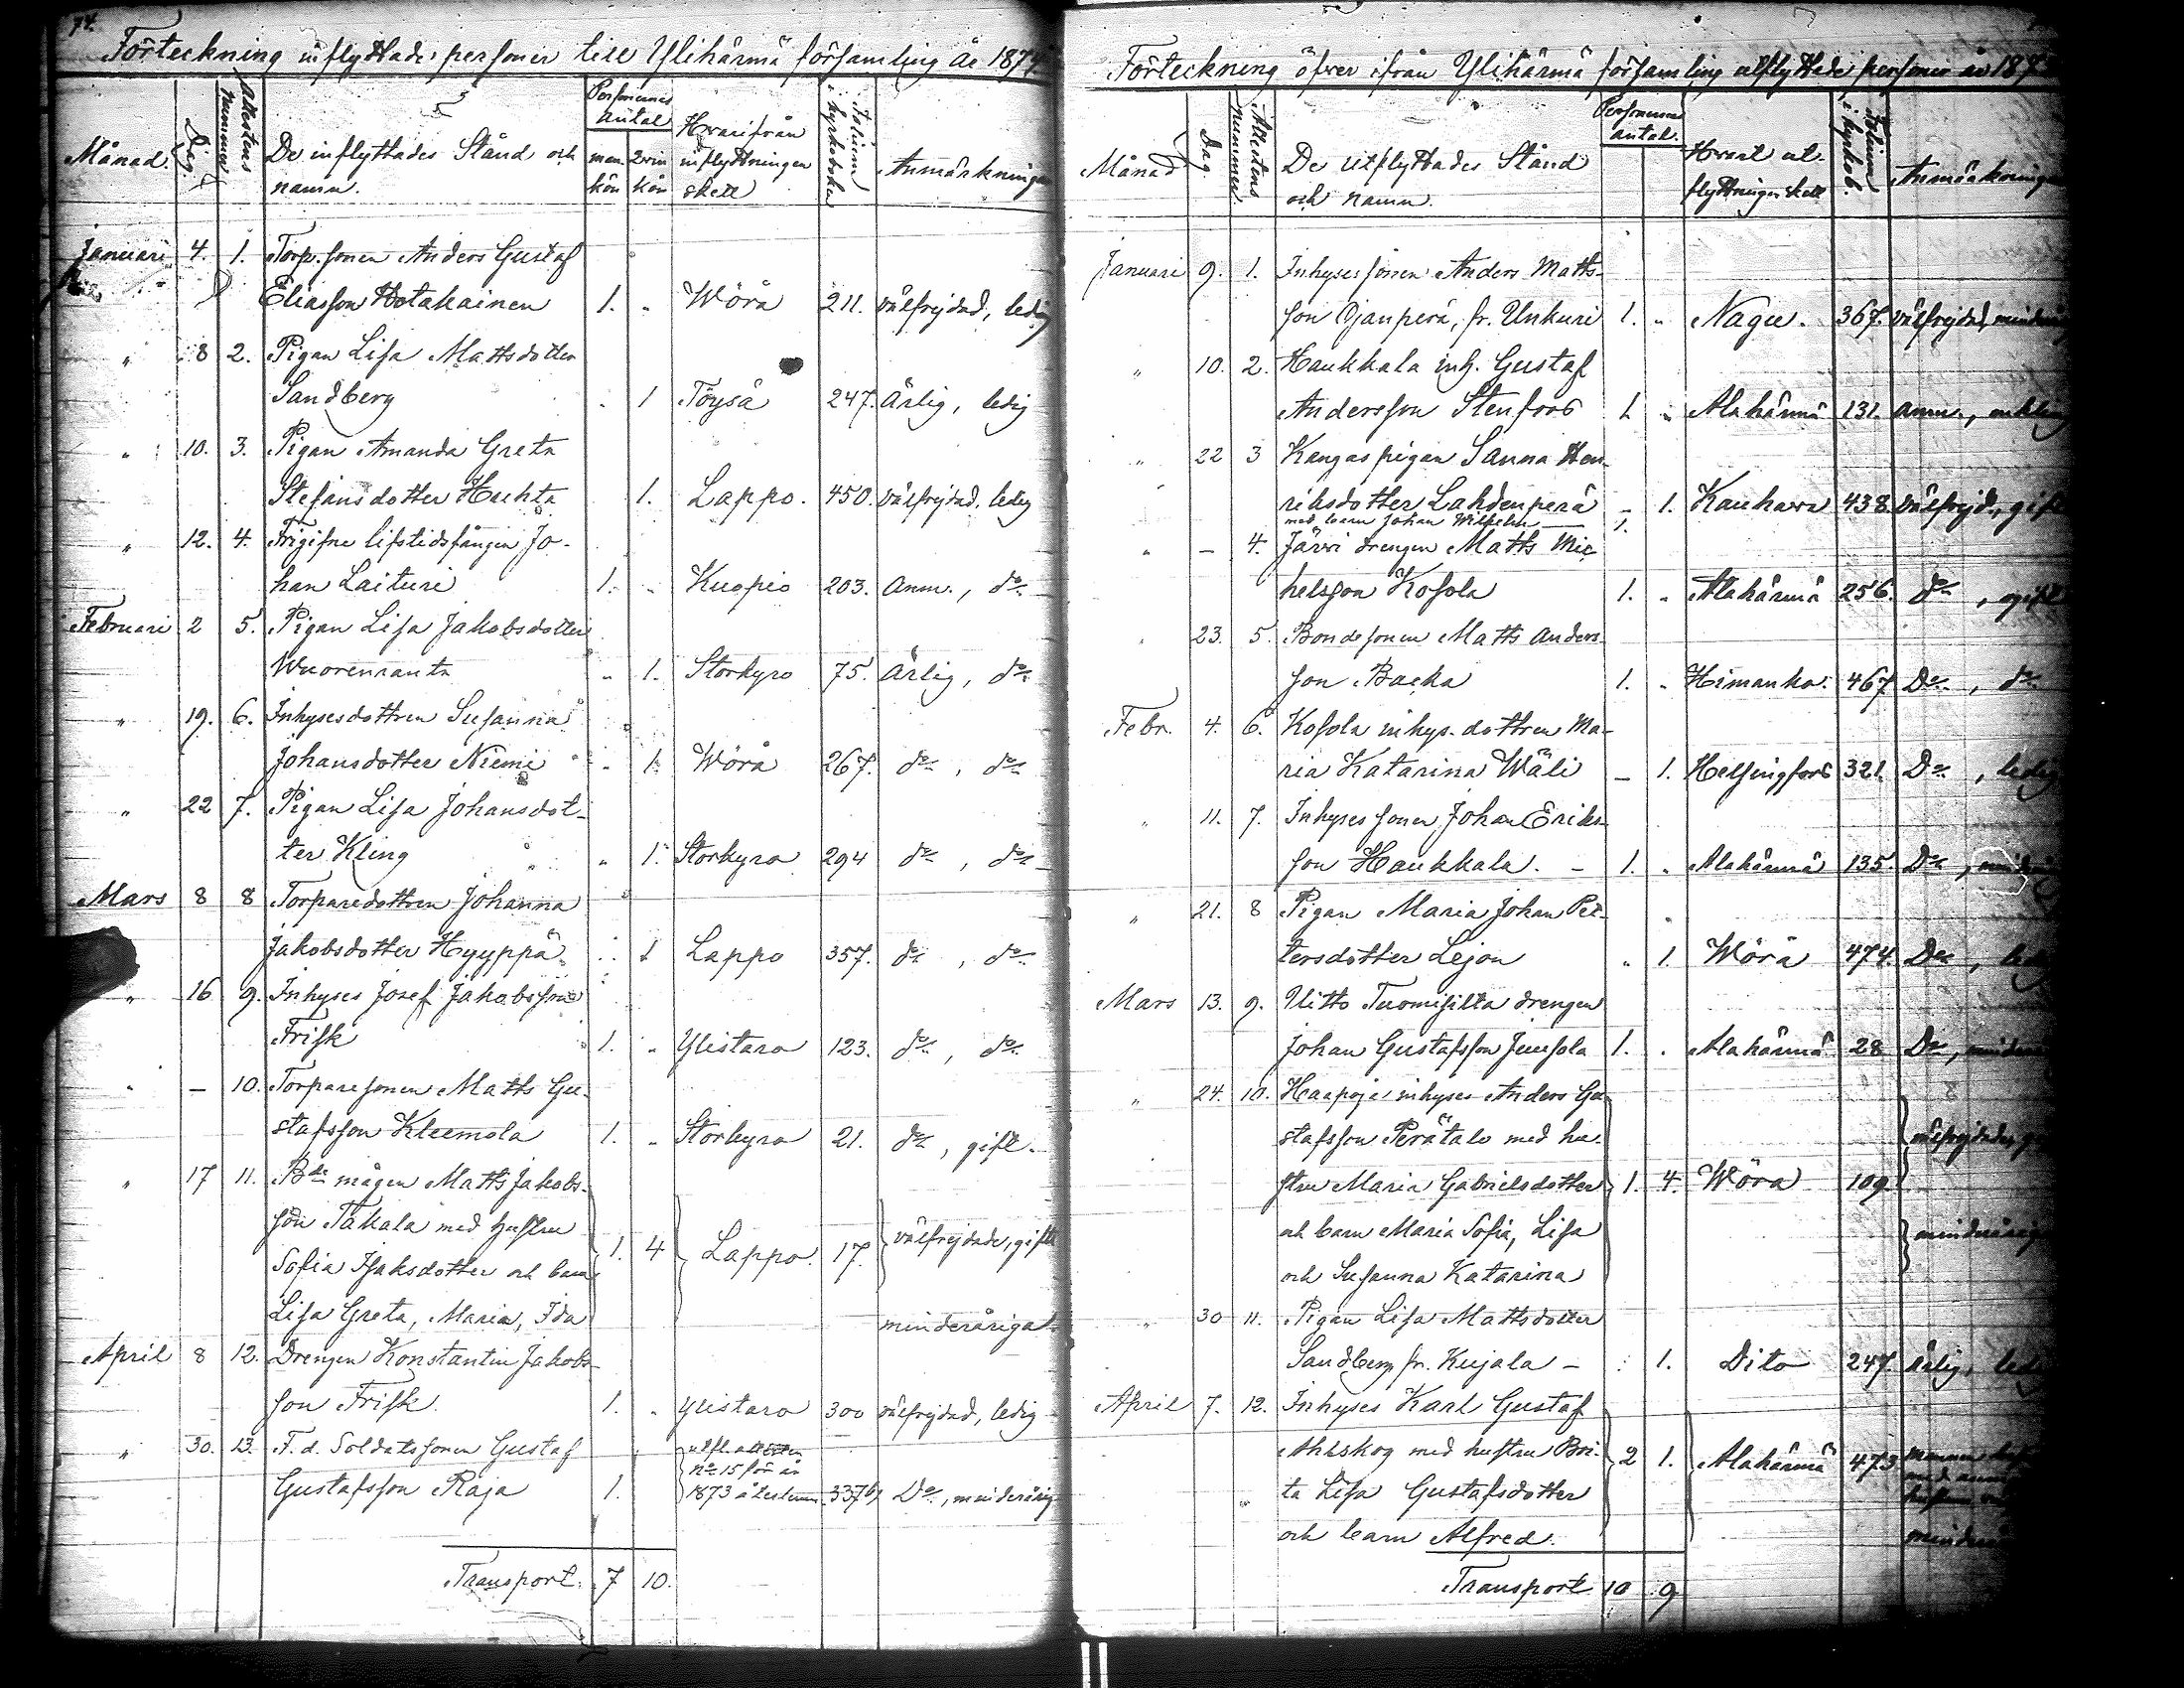 74.
Förteckning inflyttade personer till Ylihärmä församling år 1874
Månad. Dag. Attestens nummer De inflyttades Stånd och namn. Personernes antal man kön qvin kön Hvarifrån inflyttningen skett Folium i kyrkoboken Anmärkningar
Januari 4. 1. Torp.sonen Anders Gustaf
Eliasson Hotakainen 1. „ Wörå 211. välfrejdad, ledig
„ 8 2. Pigan Lisa Mattsdotter
Sandberg „ 1 Töysä 247. Ärlig, ledig
„ 10. 3. Pigan Amanda Greta
Stefansdotter Huhta 1. Lappo. 450. välfrejdad, ledig
„ 12. 4. Frigifne lifstidsfången Jo-
han Laituri 1. „ Kuopio 203. Anm., do
Februari 2 5. Pigan Lisa Jakobsdotter
Wuorenranta „ 1. Storkyro 75. Ärlig, do
„ 19. 6. Inhysesdottren Susanna
Johansdotter Niemi „ 1. Wörå 267. do, do
„ 22 7. Pigan Lisa Johansdot-
ter Kling „ 1. Storkyro 294 do, do
Mars 8 8 Torparedottren Johanna
Jakobsdotter Hyyppä „ 1 Lappo 357. do, do
„ 16 9. Inhyses Josef Jakobsson
Frisk 1. „ Ylistaro 123. do, do
„ — 10. Torparesonen Matts Gu-
stafsson Kleemola 1. „ Storkyro 21. do, gift.
„ 17 11. Bde mågen Matts Jakobs-
son Takala med hustru
Sofia Isaksdotter och barn 1. 4 Lappo. 17. välfrejdade, gifte
Lisa Greta, Maria, Ida minderåriga
April 8 12. Drengen Konstantin Jakobs-
son Frisk. 1. „ Ylistaro 300 välfrejdad, ledig
„ 30. 13. F. d. Soldatssonen Gustaf
Gustafsson Raja 1. utfl. attesten No 15 för år 1873 återlemn. 337 Do, minderårig
Transport. 7 10.
Förteckning öfver ifrån Ylihärmä församling utflyttade personer år 187
Månad Dag Attestens nummer. De utflyttades Stånd och namn. Personernes antal. Hvart utflyttningen skett Folium i kyrkob. Anmärkningar
Januari 9. 1. Inhysessonen Anders Matts-
son Ojanperä, fr. Unkuri 1. „ Nagu. 367. välfrejdad, minderårig
„ 10. 2. Haukkala inh. Gustaf
Andersson Stenfors 1. „ Alahärmä 131. Anm., enkling
„ 22 3 Kangas pigan Sanna Hen-
riksdotter Lahdenperä – 1. Kauhava 438. välfrejd., gift
med barn Johan Wilhelm — 1.
„ — 4. Järvi drengen Matts Mic-
helsson Kosola 1. „ Alahärmä 256. do, ogift
„ 23. 5. Bondesonen Matts Anders-
son Backa 1. „ Himanko. 467 Do, do
Febr. 4. 6. Kosola inhys. dottren Ma-
ria Katarina Wäli – 1. Helsingfors 321. Do, ledig
„ 11. 7. Inhyses sonen Johan Eriks-
son Haukkala. – 1. „ Alahärmä 135. Do,
„ 21. 8 Pigan Maria Johan Pet-
tersdotter Lejon „ 1. Wörå 474. Do, ledig
Mars 13. 9. Ylitto Tuomisilta drengen
Johan Gustafsson Juusola 1. „ Alahärmä 28 Do,
„ 24. 10. Haapoja inhyses Anders Gu-
stafsson Perätalo med hu- välfrejdade,
stru Maria Gabrielsdotter 1. 4. Wörå 109
och barn Maria Sofia, Lisa minderåriga
och Susanna Katarina
„ 30 11. Pigan Lisa Mattsdotter
Sandberg fr. Kujala – 1. Dito 247. ärlig, ledig
April 7. 12. Inhyses Karl Gustaf
Ahlskog med hustru Bri- 2 1. Alahärmä 473
ta Lisa Gustafsdotter
och barn Alfred.
Transport 10 9